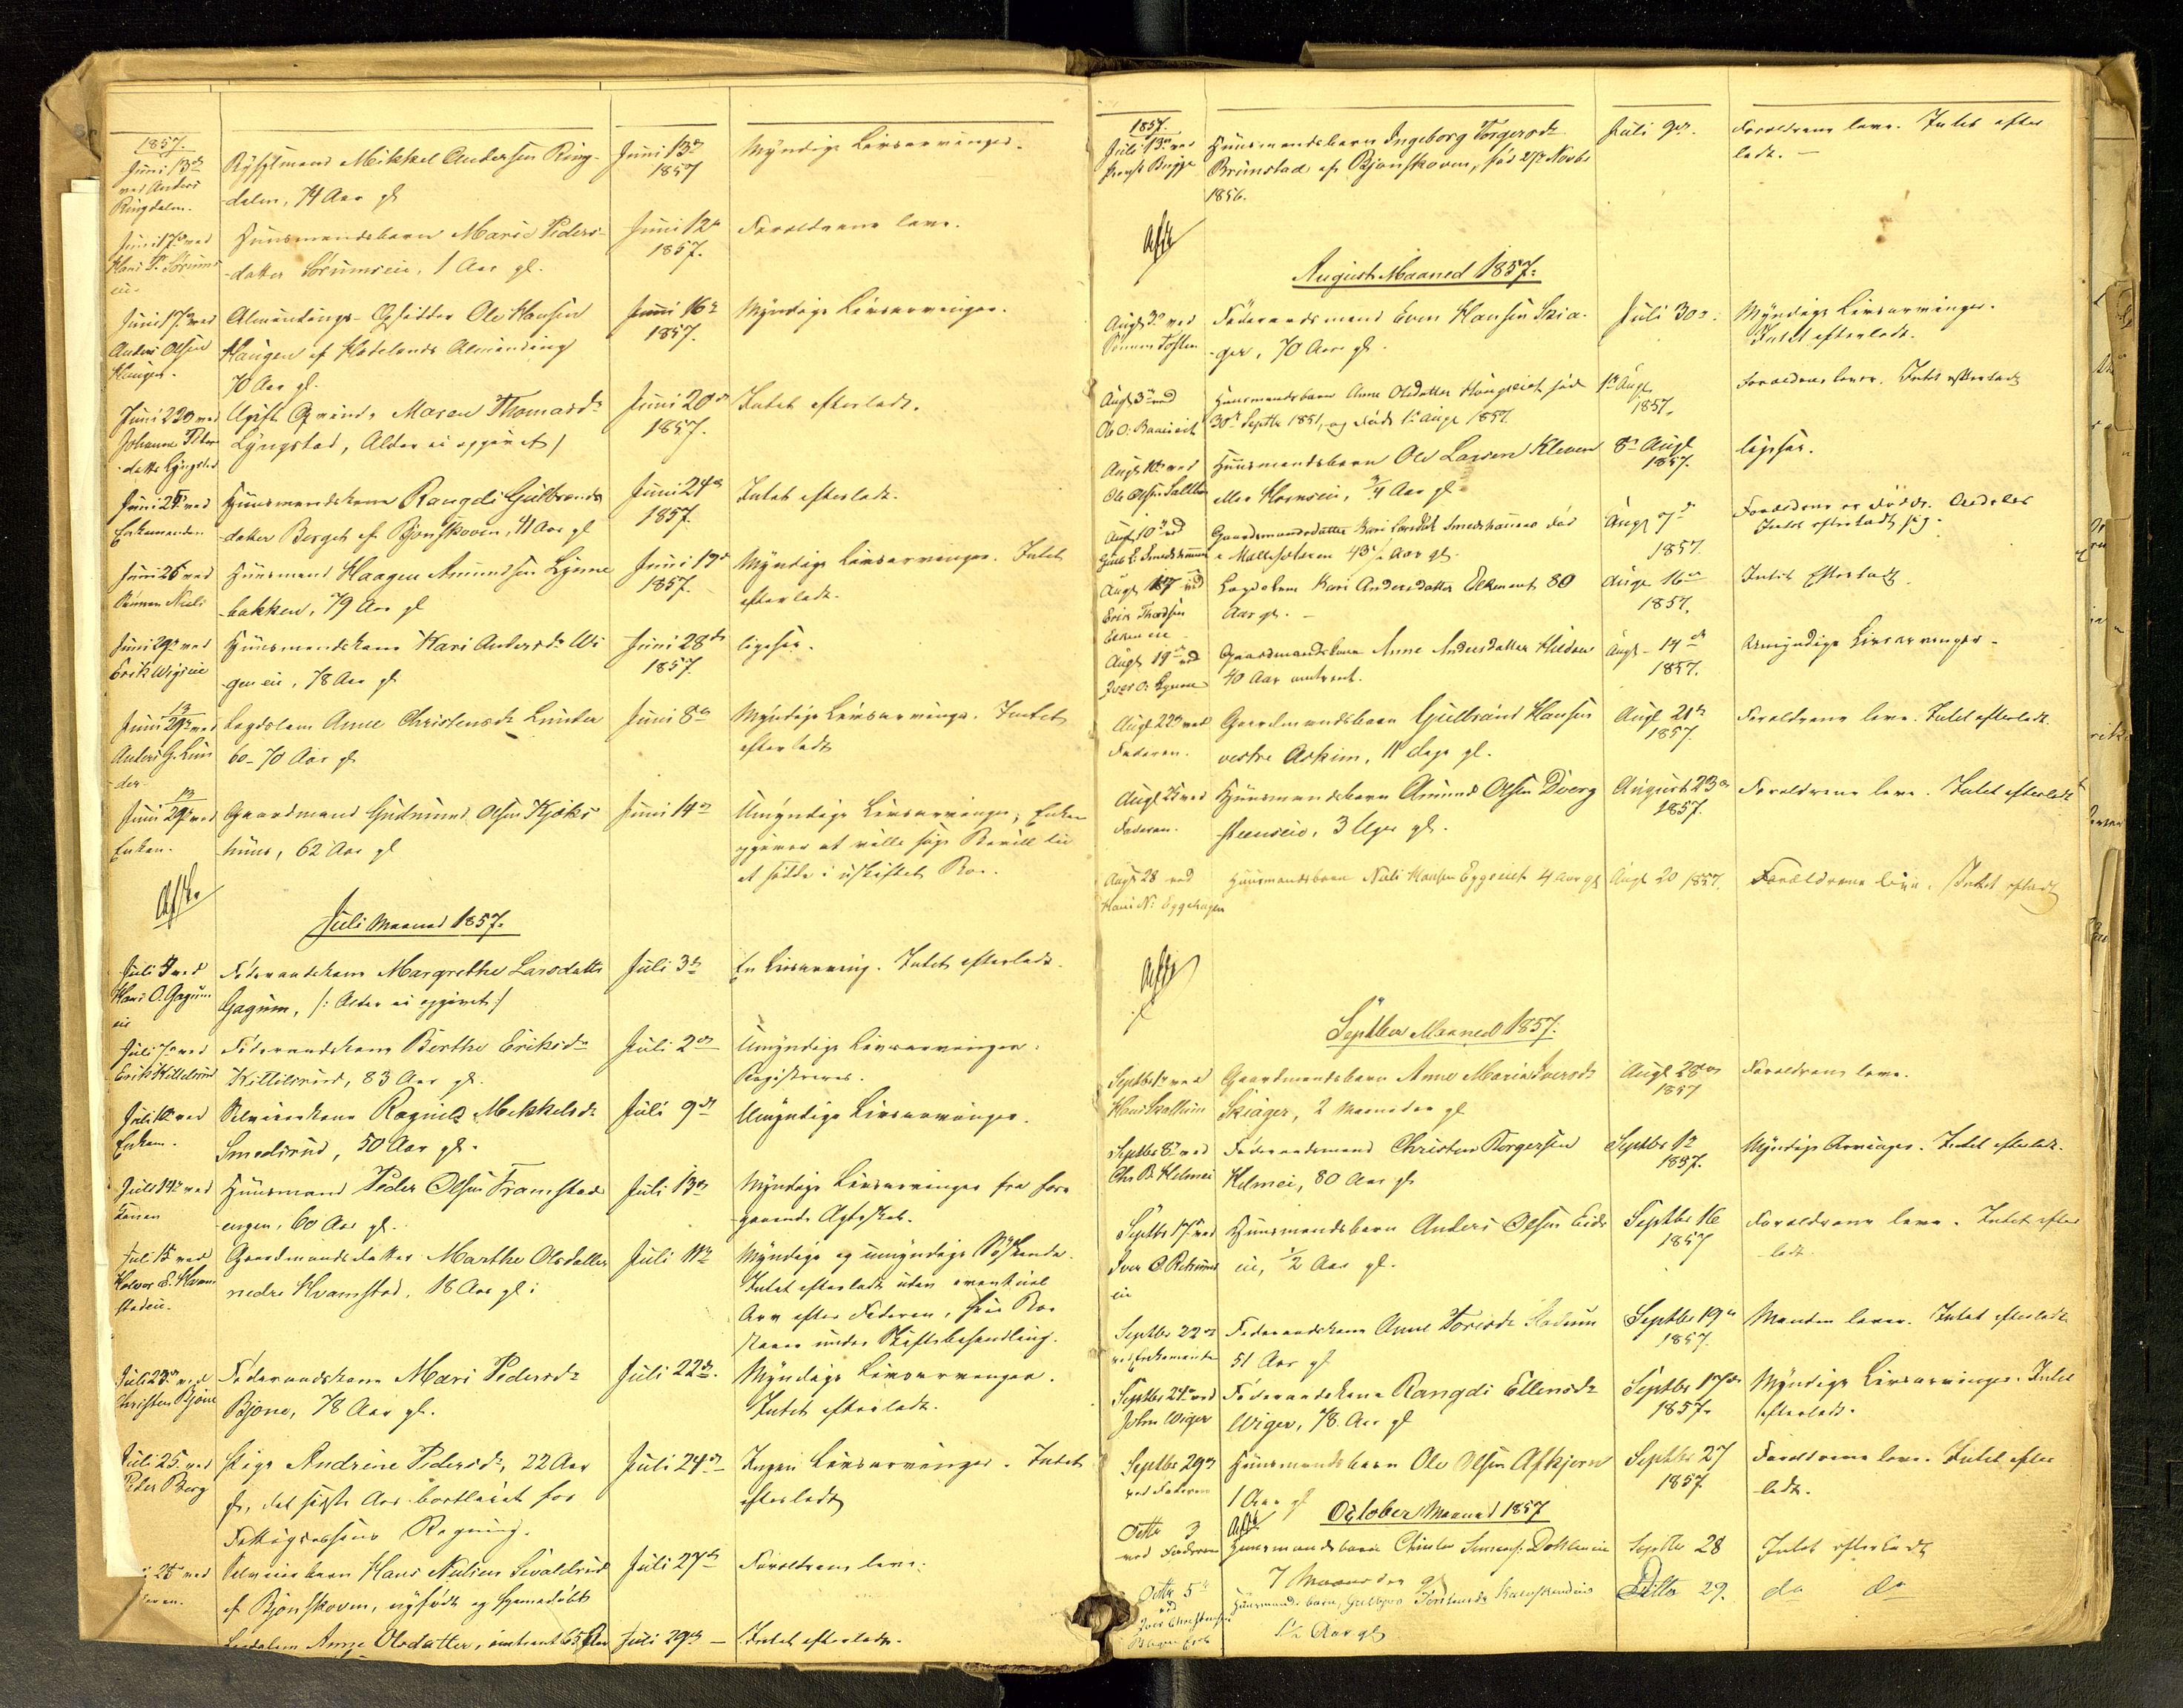 1857.
Juni 13de
ved Anders
Ringdalen.
Mikkel Andersen Ring-
dalen, 74 Aar gl
Juni 13de
1857
Myndige Livsarvinger.
Juni 17de ved
Hans P. Sørums
eie.
Huusmandsbarn Marie Peders-
datter Sørumseie, 1 Aar gl.
Juni 12te
1857.
Forældrene leve.
Juni 17de ved
Anders Olsen
Haugen.
Almindings-Opsidder Ole Hansen
Haugen af Hadelands Alminding
70 Aar gl.
Juni 16de
1857.
Myndige Livsarvinger.
Juni 22de ved
Johanne Peders
datter Lyngstad
Ugift Qvinde Maren Thomasdr
Lyngstad, Alder ei opgivet /
Juni 20de
1857.
Intet efterladt.
Juni 25de ved
Enkemanden
Huusmandskone Rangdi Gulbrands
datter Berget af Bjonskoven, 41 Aar gl
Juni 24de
1857.
Intet efterladt.
Juni 26 ved
Sønnen Niels
Huusmand Haagen Amundsen Lynne
bakken, 79 Aar gl
Juni 19de
1857.
Myndige Livsarvinger. Intet
efterladt.
Juni 29de ved
Erik Wigeneie
Huusmandskone Kari Andersdr Wi
gen eie, 78 Aar gl
Juni 28de
1857.
ligesaa.
Juni 29de ved
Anders G. Lun
der
Lægdslem Anne Christensdr Lunder
60-70 Aar gl
Juni 8de
Myndige Livsarvinger. Intet
efterladt
Juni 29de ved
Enken.
Gaardmand Gudmund Olsen Kjøks
huus, 62 Aar gl
Juni 14de
Umyndige Livsarvinger; Enken
opgiver at ville søge Bevilling til
at sidde i uskiftet Boe.
Juli Maaned 1857.
Juli 4 ved
Hans O. Gagums
eie
Føderaadskone Margrethe Larsdatter
Gagum, /: Alder ei opgivet :/
Juli 3de
En Livsarving. Intet efterladt.
Juli 7de ved
Erik Kittelsrud
Føderaadskone Berthe Eriksdr
Kittilsrud, 83 Aar gl.
Juli 2den
Umyndige Livsarvinger.
Registreres.
Juli 10de ved
Enkem.
Selveierkone Ragnild Mikkelsdr
Smedsrud, 50 Aar gl.
Juli 9de
Umyndige Livsarvinger.
Juli 14de ved
Konen
Huusmand Peder Olsen Framstad
engen, 60 Aar gl.
Juli 13de
Myndige Livsarvinger fra fore
gaaende Ægteskab.
Juli 15 ved
Halvor E. Kvam
stadeie.
Gaardmandsdatter Marthe Olsdatter
nedre Kvamstad, 18 Aar gl:
Juli 11te
Myndige og umyndige Sødskende.
Intet efterladt uden eventuel
Arv efter Faderen, hvis Boe
staaer under Skiftebehandling.
Juli 23de ved
Christen Bjone
Føderaadskone Mari Pedersdr
Bjone, 78 Aar gl.
Juli 22de.
Myndige Livsarvinger.
Intet efterladt.
Juli 25. ved
Peder Berg
Pige Andrine Pedersdr, 22 Aar
gl, det sidste Aar bortleiet for
Fattigvæsens Regning.
Juli 24de
Ingen Livsarvinger. Intet
efterladt
28 ved
Selveierbarn Hans Nielsen Sevaldsrud
af Bjonskoven, nyfødt og hjemmedøbt
Juli 27de
Forældrene leve.
Anne Olsdatter, omtrent 65 Aar
Juli 29de
Intet efterladt.
1857.
Juli 13de ved
Huusmandsbarn Ingeborg Torgersdr
Brunstad af Bjonskoven, født 27de Novbr
1856.
Juli 9de.
Forældrene leve. Intet efter
ladt. -
August Maaned 1857.
Augt 3de ved
Sønnen Tosten
Føderaadsmand Even Hansen Skia-
ger, 70 Aar gl.
Juli 30te.
Myndige Livsarvinger.
Intet efterladt.
Augt 3de ved
Huusmandsbarn Anne Olsdatter Haugseiet født
30te Septbr 1851, og død 1te Augt 1857.
1te Augt
1857.
Forældrene lever. Intet efterladt
Augt 10de ved
Huusmandsbarn Ole Larsen Kleven
eller Hornseie, 3/4 Aar gl.
8de Augt
1857.
ligesaa.
Augt 10de ved
Gaardmandsdatter Kari Larsdatter Smedshammer død
43 1/2 Aar gl.
Augt 7de
1857.
Forældrene er døde.
Intet efterladt sig.
Augt 17 ved
Erik Thordsen
Lægdslem Kari Andersdatter 80
Aar gl. -
Augt 16de
1857.
Intet Efterladt.
Augt 19de ved
Iver O. Lynne
Gaardmandskone Anne Andersdatter Hilden
40 Aar omtrent.
Augt 14de
1857.
Umyndige Livsarvinger.
Augt 22de ved
Faderen.
Gaardmandsbarn Gulbrand Hansen
vestre Askim, 11 dage gl.
Augt 21de
1857.
Forældrene leve. Intet efterladt.
Augt 25 ved
Faderen.
Huusmandsbarn Amund Olsen Dverg
steenseie, 3 Uger gl.
August 23de
1857.
Forældrene leve. Intet efterladt
Augt 28 ved
Hans N. Eggehagen
Huusmandsbarn Niels Hansen Eggeeiet 4 Aar gl
Augt 20 1857.
Forældrene leve. Intet efterladt
Septbr Maaned 1857.
Septbr 1te ved
Gaardmandsbarn Anne Marie Iversdr
Skiager, 2 Maaneder gl
Augt 28de
1857
Forældrene leve.
Septbr 8de ved
Chr. B. Helmei
Føderaadsmand Christen Borgersen
Helmei, 80 Aar gl
Septbr 1te
1857.
Myndige Arvinger. Intet efterladt.
Septbr 17de ved
Huusmandsbarn Anders Olsen Eids
eie, 1/2 Aar gl.
Septbr 16
1857
Forældrene leve. Intet efter
ladt
Septbr 22de
ved Enkemanden
Føderaadskone Anne Toresdr
51 Aar gl
Septbr 19de
1857.
Manden lever. Intet efterladt
Septbr 24de ved
John Wigen
Føderaadskone Rangdi Ellensdr
Wigen, 78 Aar gl
Septbr 17de
1857.
Myndige Livsarvinger. Intet
efterladt.
Septbr 29de
ved Faderen
Huusmandsbarn Ole Olsen Askjern
1 Aar gl
Septbr 27
1857.
Forældrene leve. Intet efter
ladt.
October Maaned 1857
Octbr 3
ved Faderen
Huusmandsbarn
7 Maaneder gl
Septbr 28
Intet efterladt
Octbr 5te
ved
Huusmands barn
1/2 Aar gl
Ditto 29.
do do